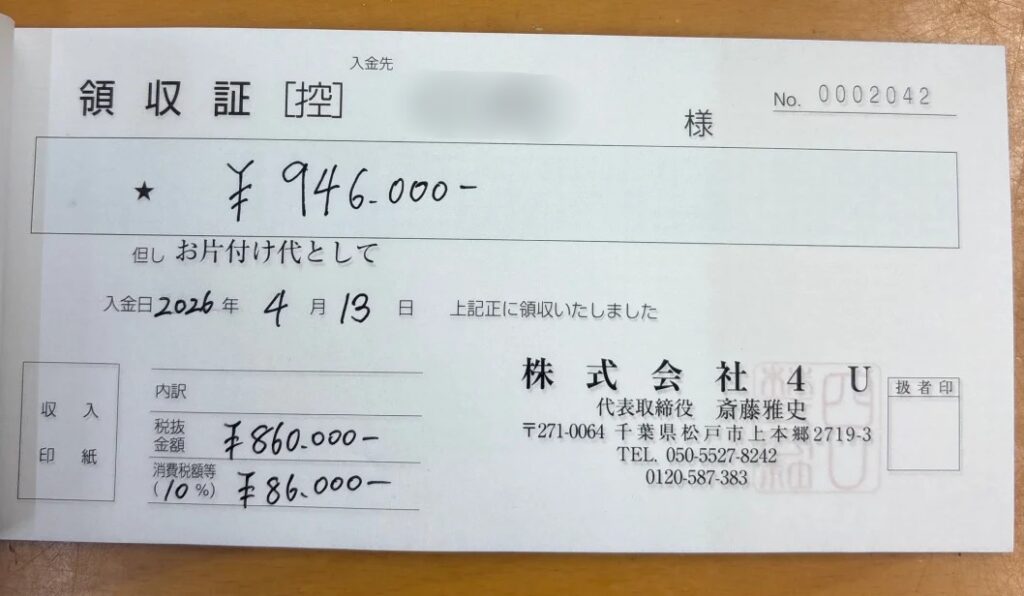 入金先
領収証 [控] 様 No. 0002042
★ ¥946.000-
但し お片付け代として
入金日 2026 年 4 月 13 日 上記正に領収いたしました
収入
印紙
内訳
税抜
金額 ¥860.000-
消費税額等
(10%) ¥86.000-
株式会社4U
代表取締役 斎藤雅史
〒271-0064 千葉県松戸市上本郷2719-3
TEL. 050-5527-8242
0120-587-383
扱者印